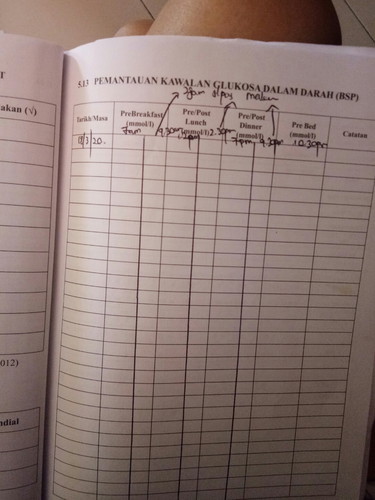 T
akan (√)
012)
ndial
5.13 PEMANTAUAN KAWALAN GLUKOSA DALAM DARAH (BSP)
2 jam slps makan
Tarikh/Masa
PreBreakfast
(mmol/l)
7am
9.30am
Pre/Post
Lunch
(mmol/l)
12pm
2.30pm
Pre/Post
Dinner
(mmol/l)
7pm
9.30pm
Pre Bed
(mmol/l)
10.30pm
Catatan
/3/20.